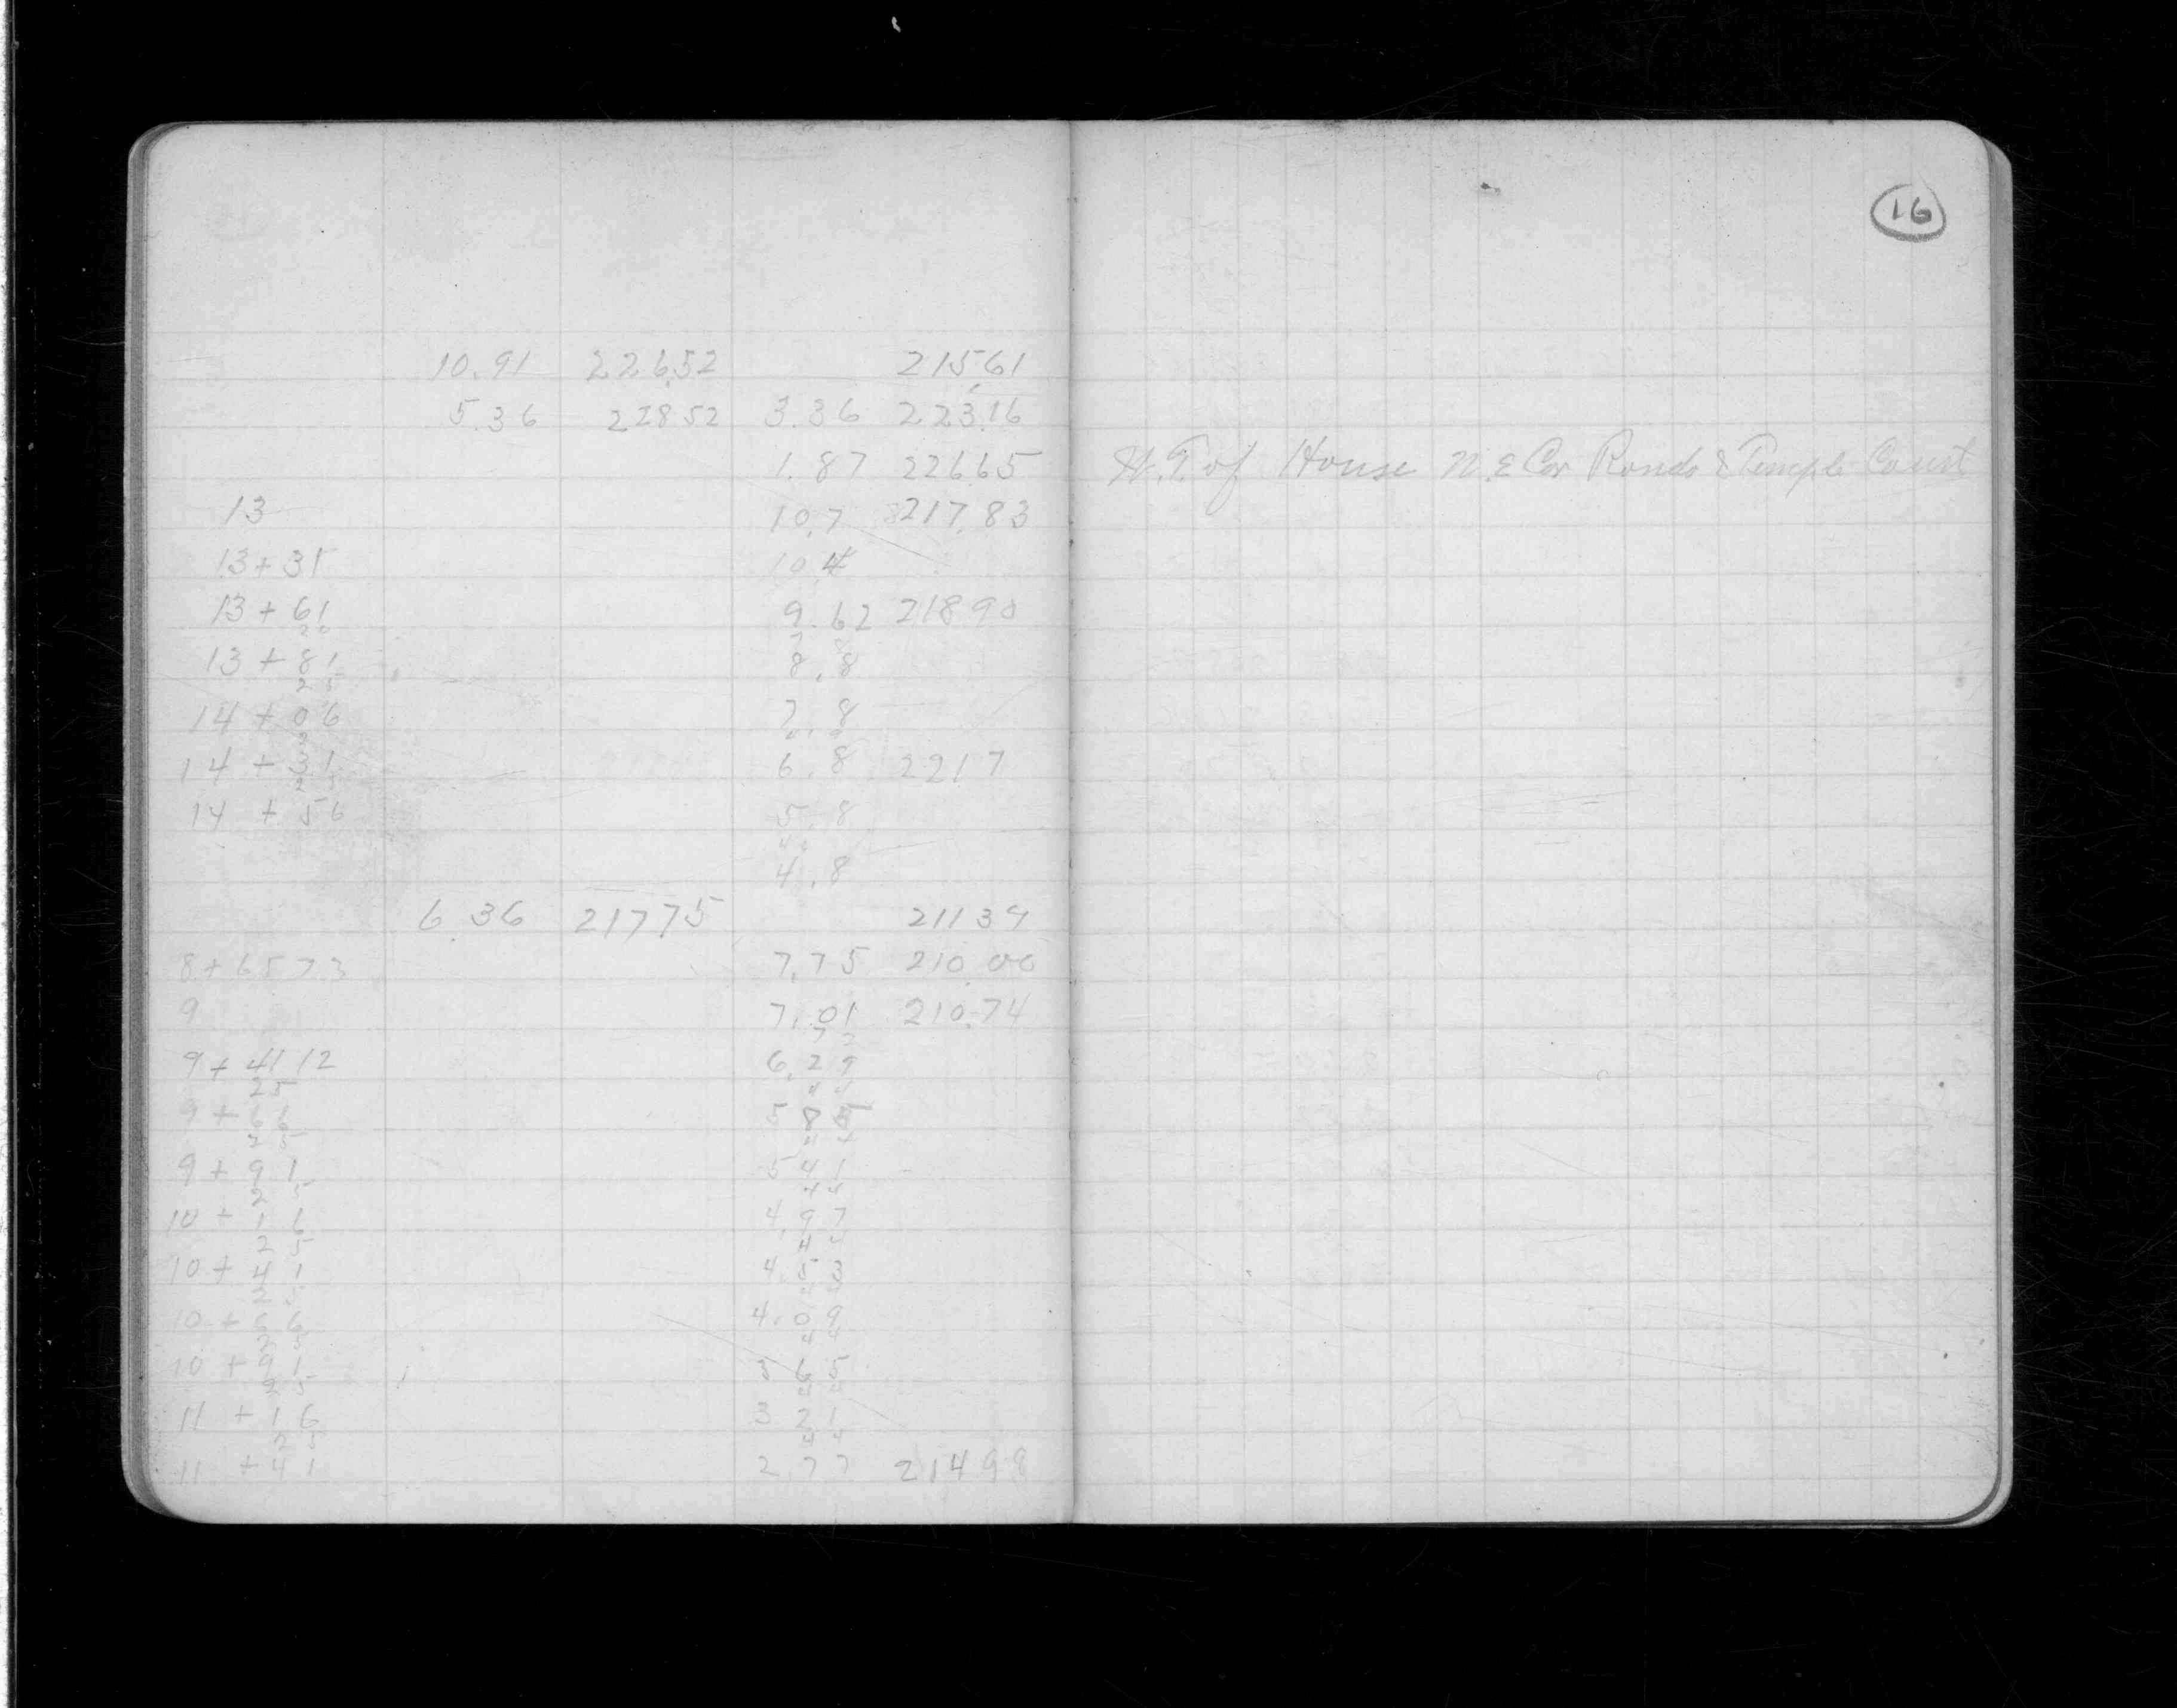 16
10.91 226.52 215.61
5.36 228.52 3.36 223.16
1.87 226.65 W.T. of House N.E Cor Rondo & Temple Court
13 10.7 217.83
13+31 10.4
13+61 9.62 218.90
20
13+81 8.8
25
14+06 7.8
14+31 6.8 2217
14+56 5.8
4.8
6.36 217.75 21139
8+6573 7.75 210.00
9 7.01 210.74
72
9+4112 6.29
25
9+66 5 85
9+91 5 41
44
10+16 4.97
25
10+41 4.53
10+66 4.09
44
10+91 3 65
25
11+16 3 21
25 44
11+41 2 77 21498